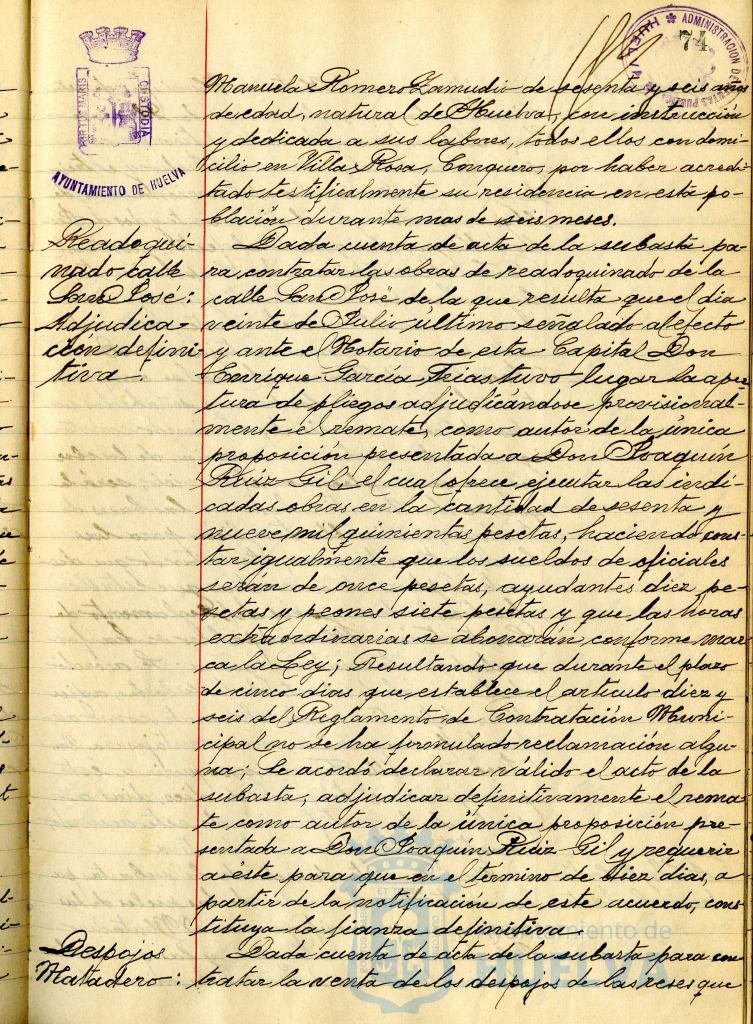 HUELVA ✱ ADMINISTRACION DE
74
PORTUS MARIS
CUSTODIA
AYUNTAMIENTO DE HUELVA
Manuela Romero Zamudio de sesenta y seis años
de edad, natural de Huelva, con instrucción
y dedicada a sus labores, todos ellos con domi-
cilio en Villa Rosa, Conquero, por haber acredi-
tado testificalmente su residencia en esta po-
blación durante mas de seis meses.
Readoqui-
nado calle
San José:
Adjudica-
ción defini-
tiva.
Dada cuenta de acta de la subasta pa-
ra contratar las obras de readoquinado de la
calle San José de la que resulta que el dia
veinte de Julio último señalado al efecto
y ante el Notario de esta Capital Don
Enrique García Arias tuvo lugar la aper-
tura de pliegos adjudicándose provisional-
mente el remate, como autor de la única
proposición presentada a Don Joaquín
Ruiz Gil, el cual ofrece ejecutar las indi-
cadas obras en la cantidad de sesenta y
nueve mil quinientas pesetas, haciendo cons-
tar igualmente que los sueldos de oficiales
serán de once pesetas, ayudantes diez pe-
setas y peones siete pesetas y que las horas
extraordinarias se abonarán conforme mar-
ca la Ley; Resultando que durante el plazo
de cinco dias que establece el artículo diez y
seis del Reglamento de Contratación Muni-
cipal no se ha formulado reclamación algu-
na; Se acordó declarar válido el acto de la
subasta, adjudicar definitivamente el rema-
te como autor de la única proposición pre-
sentada a Don Joaquín Ruiz Gil y requerir
a éste para que en el término de diez dias, a
partir de la notificación de este acuerdo, cons-
tituya la fianza definitiva.
Despojos
Matadero:
Dada cuenta de acta de la subasta para con
tratar la venta de los despojos de las reses que
Ayuntamiento de
HUELVA